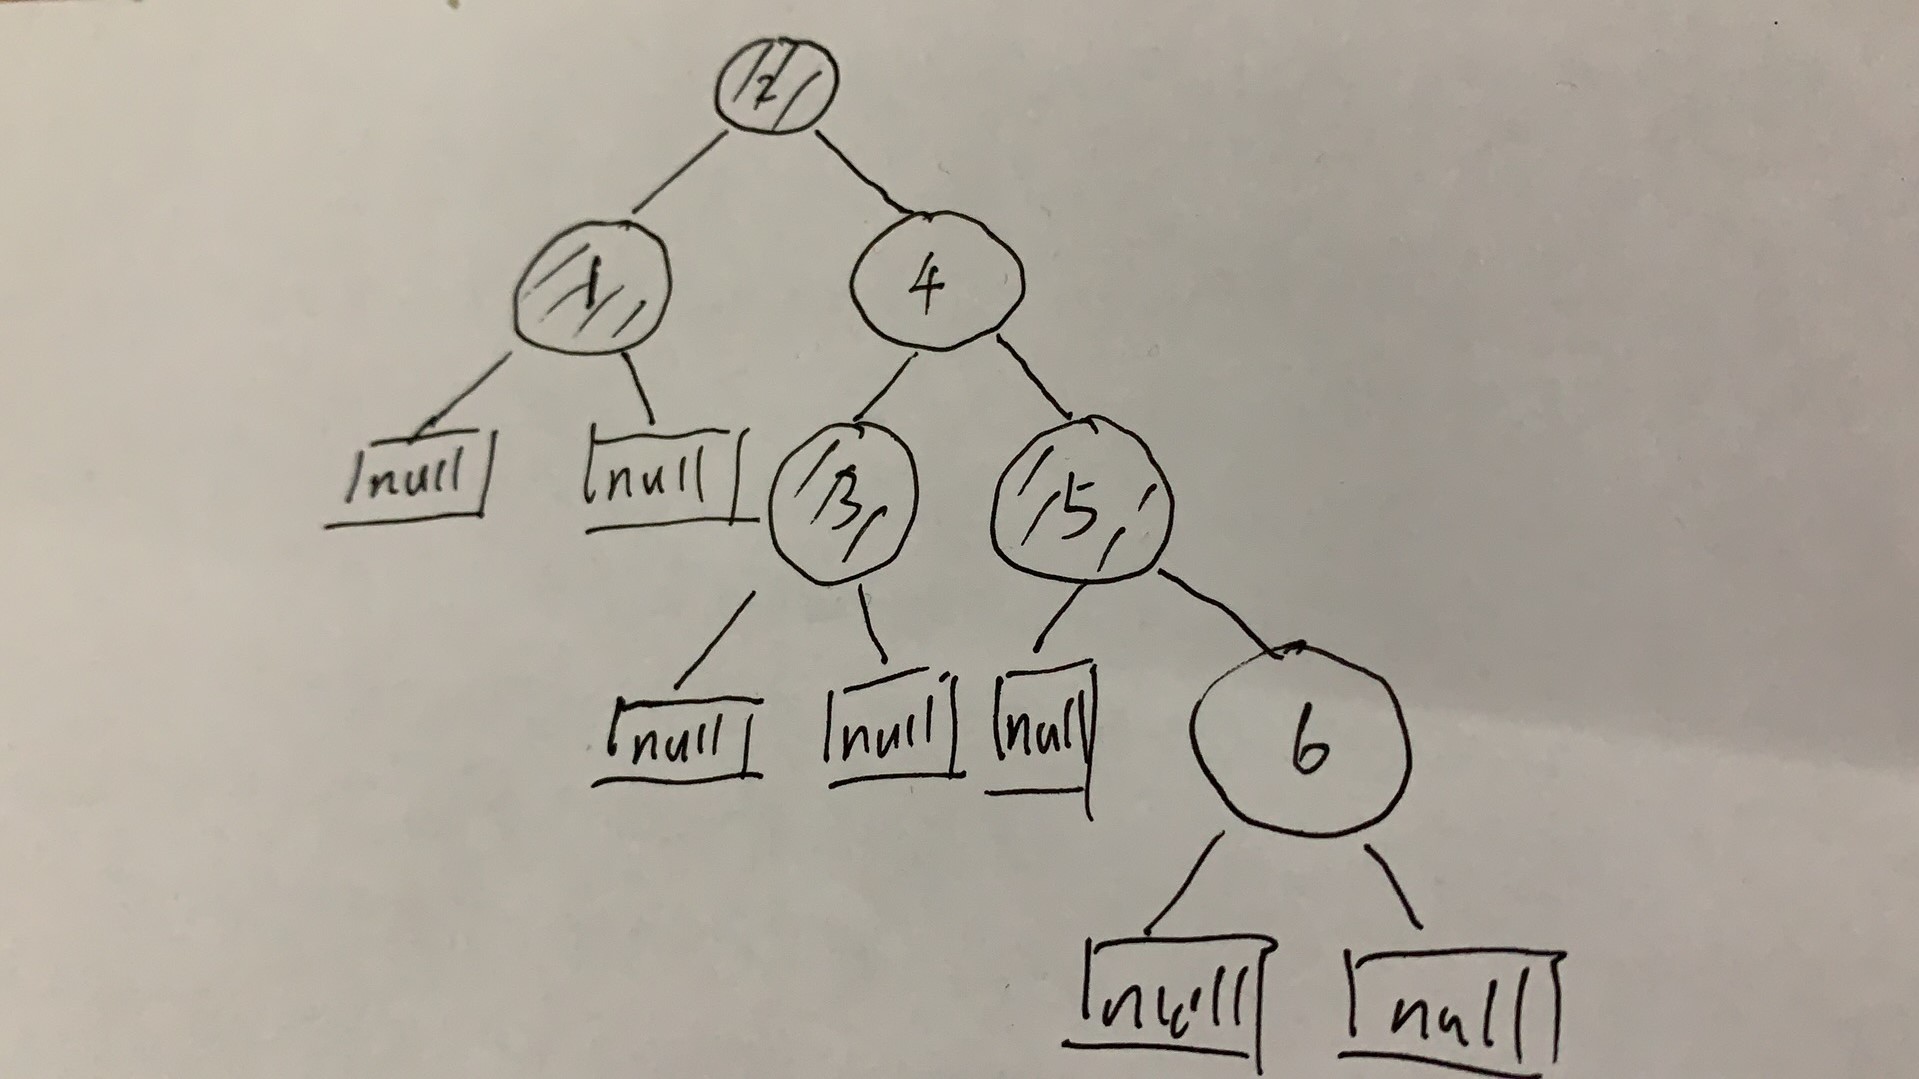 2
1 4
null null 3 5
null null null 6
null null